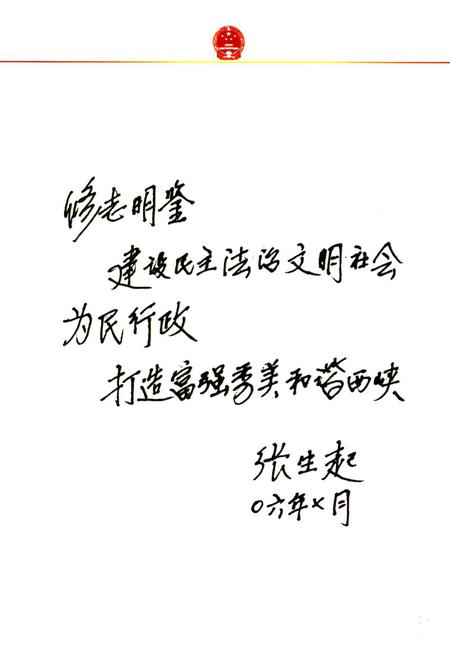 修志明鉴
建设民主法治文明社会
为民行政
打造富强秀美和谐西峡
张生起
〇六年七月